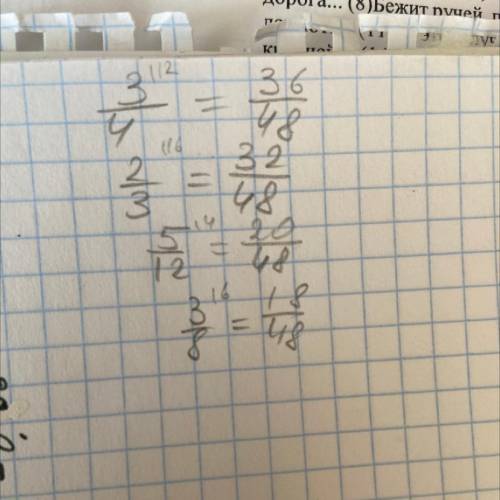 дорога... (8)Бежит ручей, п
3/4 \12 = 36/48
2/3 \16 = 32/48
5/12 \4 = 20/48
3/8 \6 = 18/48